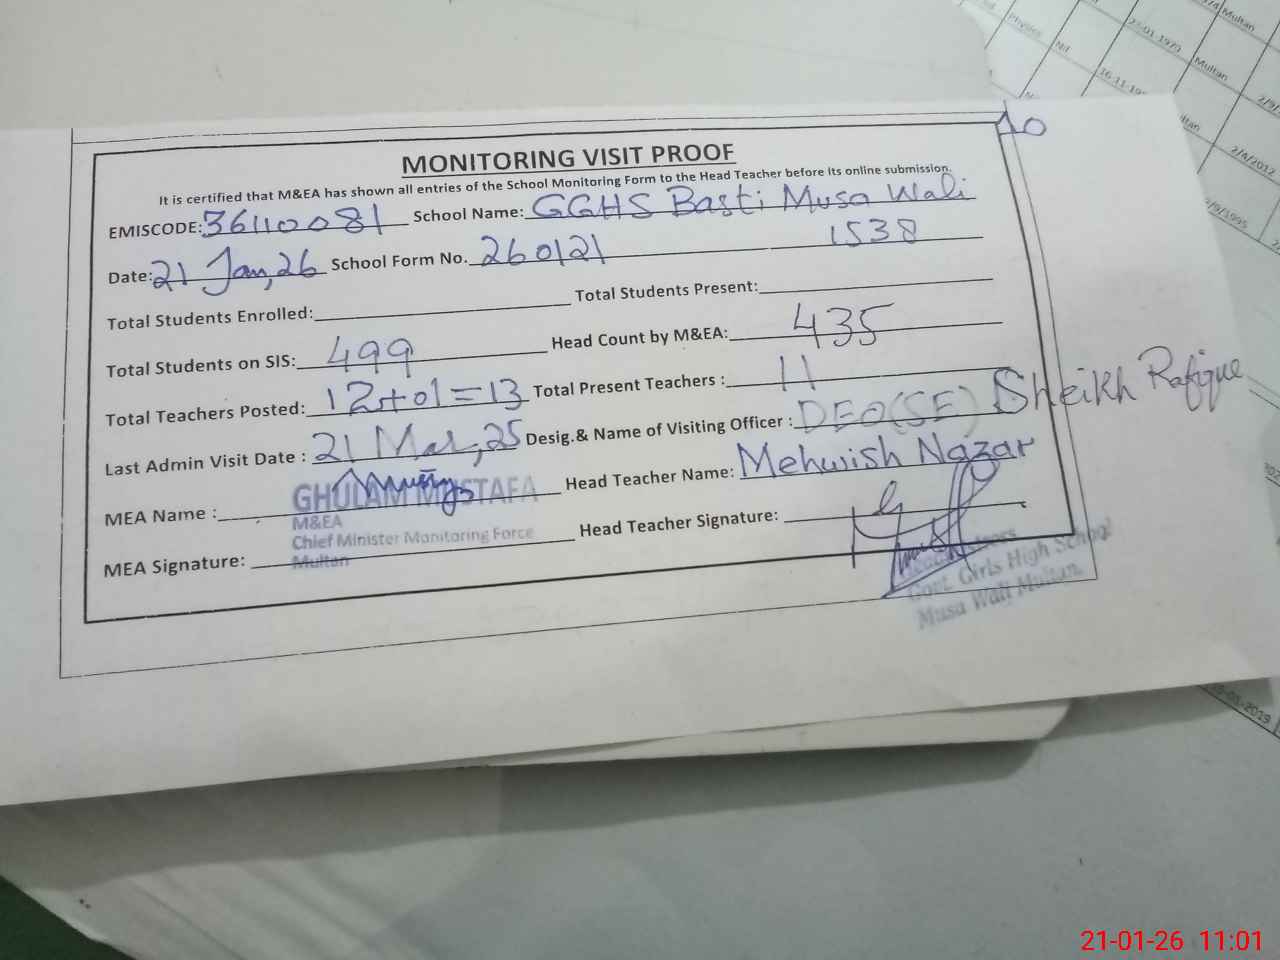 10
MONITORING VISIT PROOF
It is certified that M&EA has shown all entries of the School Monitoring Form to the Head Teacher before its online submission.
EMISCODE: 36110081 School Name: GGHS Basti Musa Wali
Date: 21 Jan, 26 School Form No. 260121 1538
Total Students Enrolled: Total Students Present:
Total Students on SIS: 499 Head Count by M&EA: 435
Total Teachers Posted: 12+01=13 Total Present Teachers : 11
Last Admin Visit Date : 21 Mar, 25 Desig.& Name of Visiting Officer : DEO(SE) Sheikh Rafique
MEA Name : GHULAM MUSTAFA Head Teacher Name: Mehwish Nazar
M&EA
Chief Minister Monitoring Force
Multan
MEA Signature: Head Teacher Signature:
Govt. Girls High School
Musa Wali Multan.
Physics
Nil
23-01-1979
Multan
Multan
2/4/2012
21-01-26 11:01